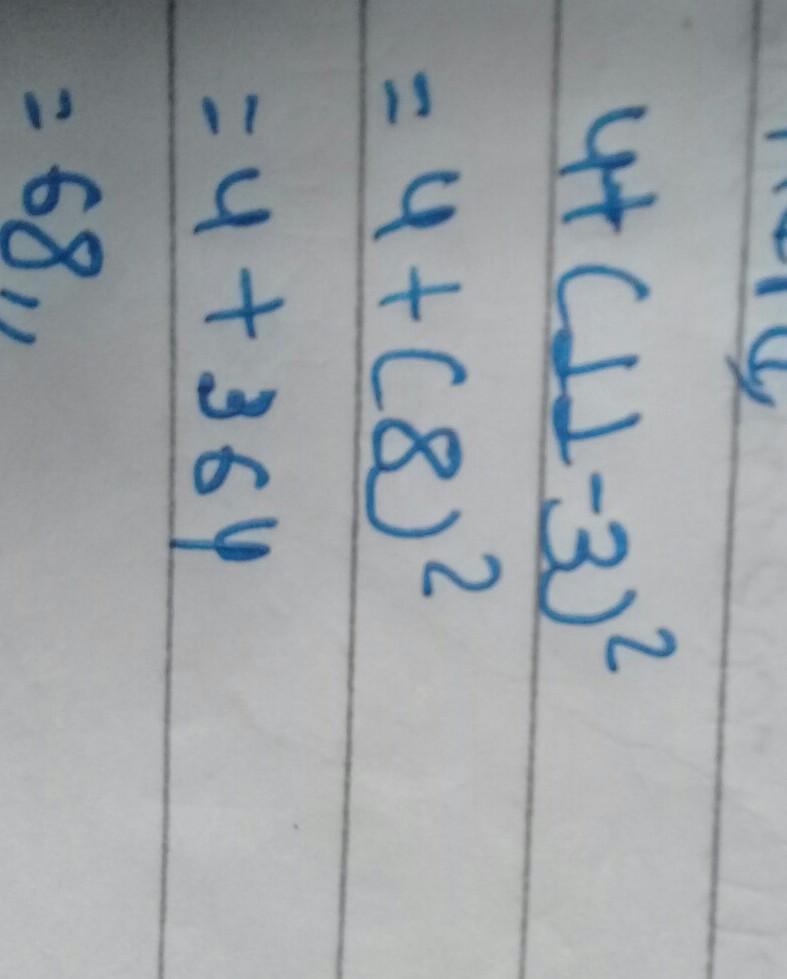 4+ (11-3)²
= 4 + (8)²
= 4 + 364
= 68"